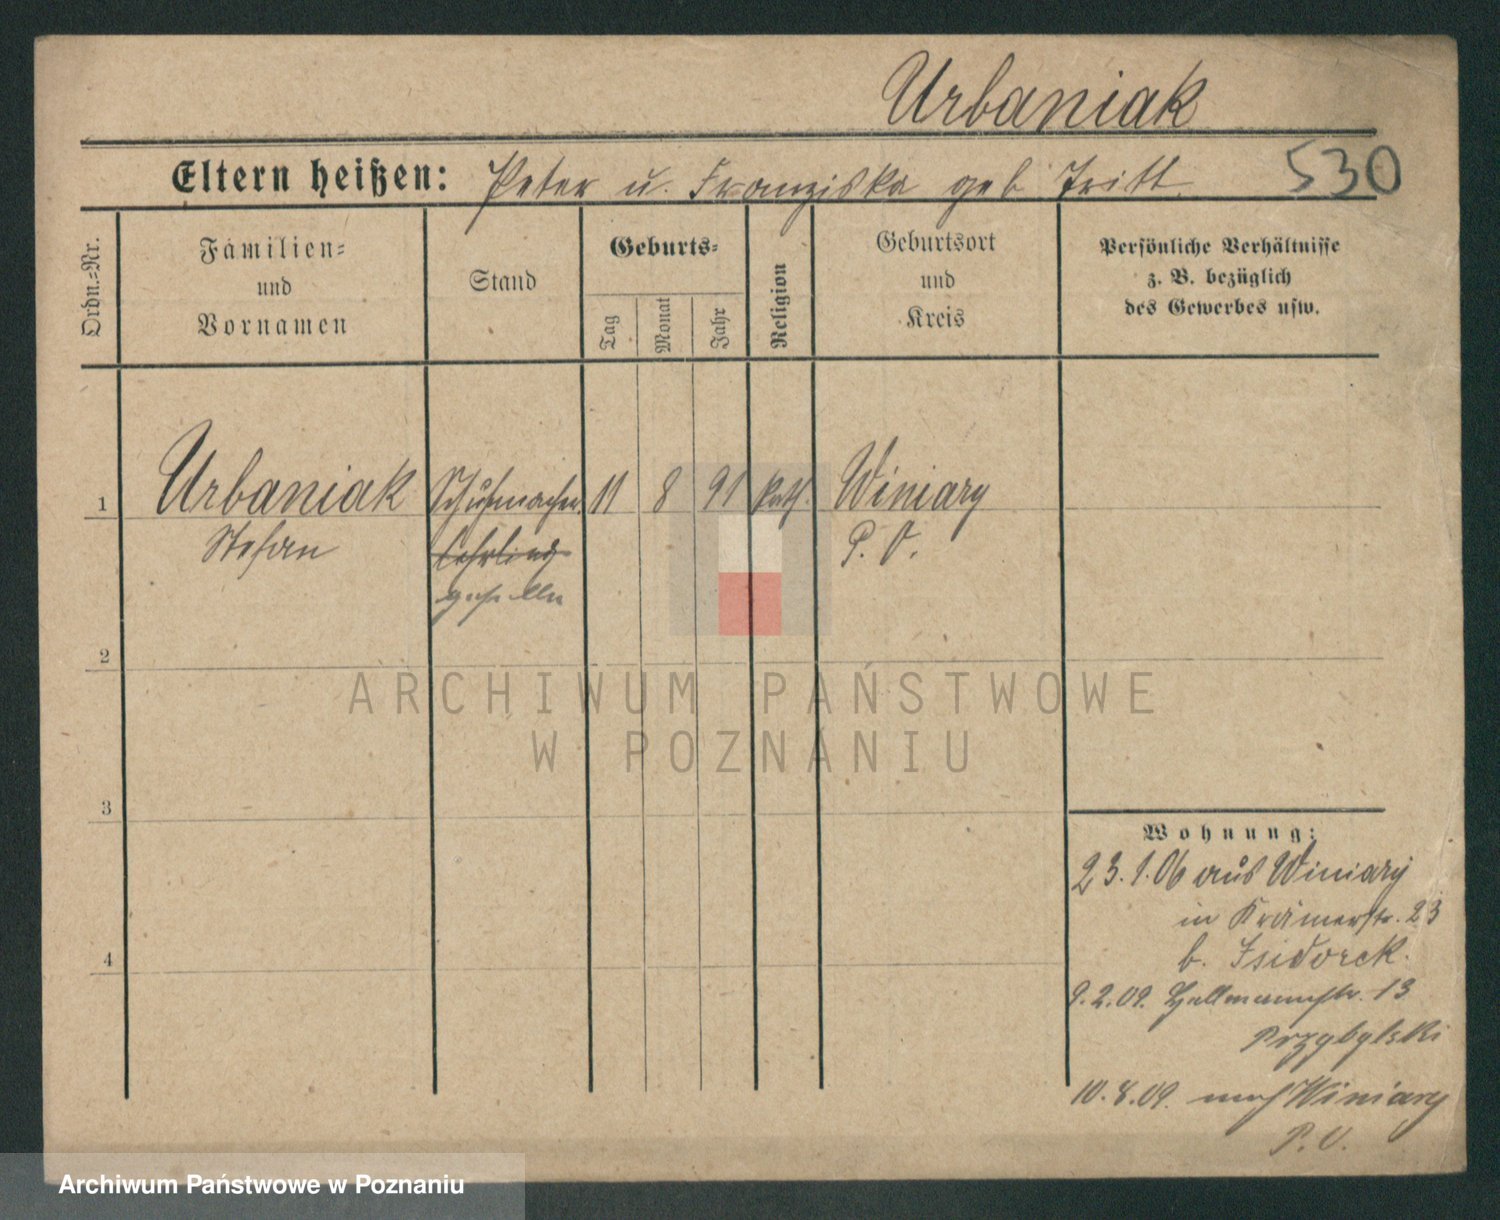 Urbaniak
Eltern heißen: Peter u. Franziska geb Tritt
530
Ordn.=Nr.
Familien=
und
Vornamen
Stand
Geburts=
Tag
Monat
Jahr
Religion
Geburtsort
und
Kreis
Persönliche Verhältnisse
z. B. bezüglich
des Gewerbes usw.
1 Urbaniak Schuhmacher 11 8 91 kath. Winiary
Stefan lehrling P. O.
geselle
2
3
4
Wohnung:
23.1.06 aus Winiary
in Krämerstr. 23
b. Isidorek.
9.2.09. str. 13
Przybylski
10.8.09. nach Winiary
P. O.
ARCHIWUM PAŃSTWOWE
W POZNANIU
Archiwum Państwowe w Poznaniu